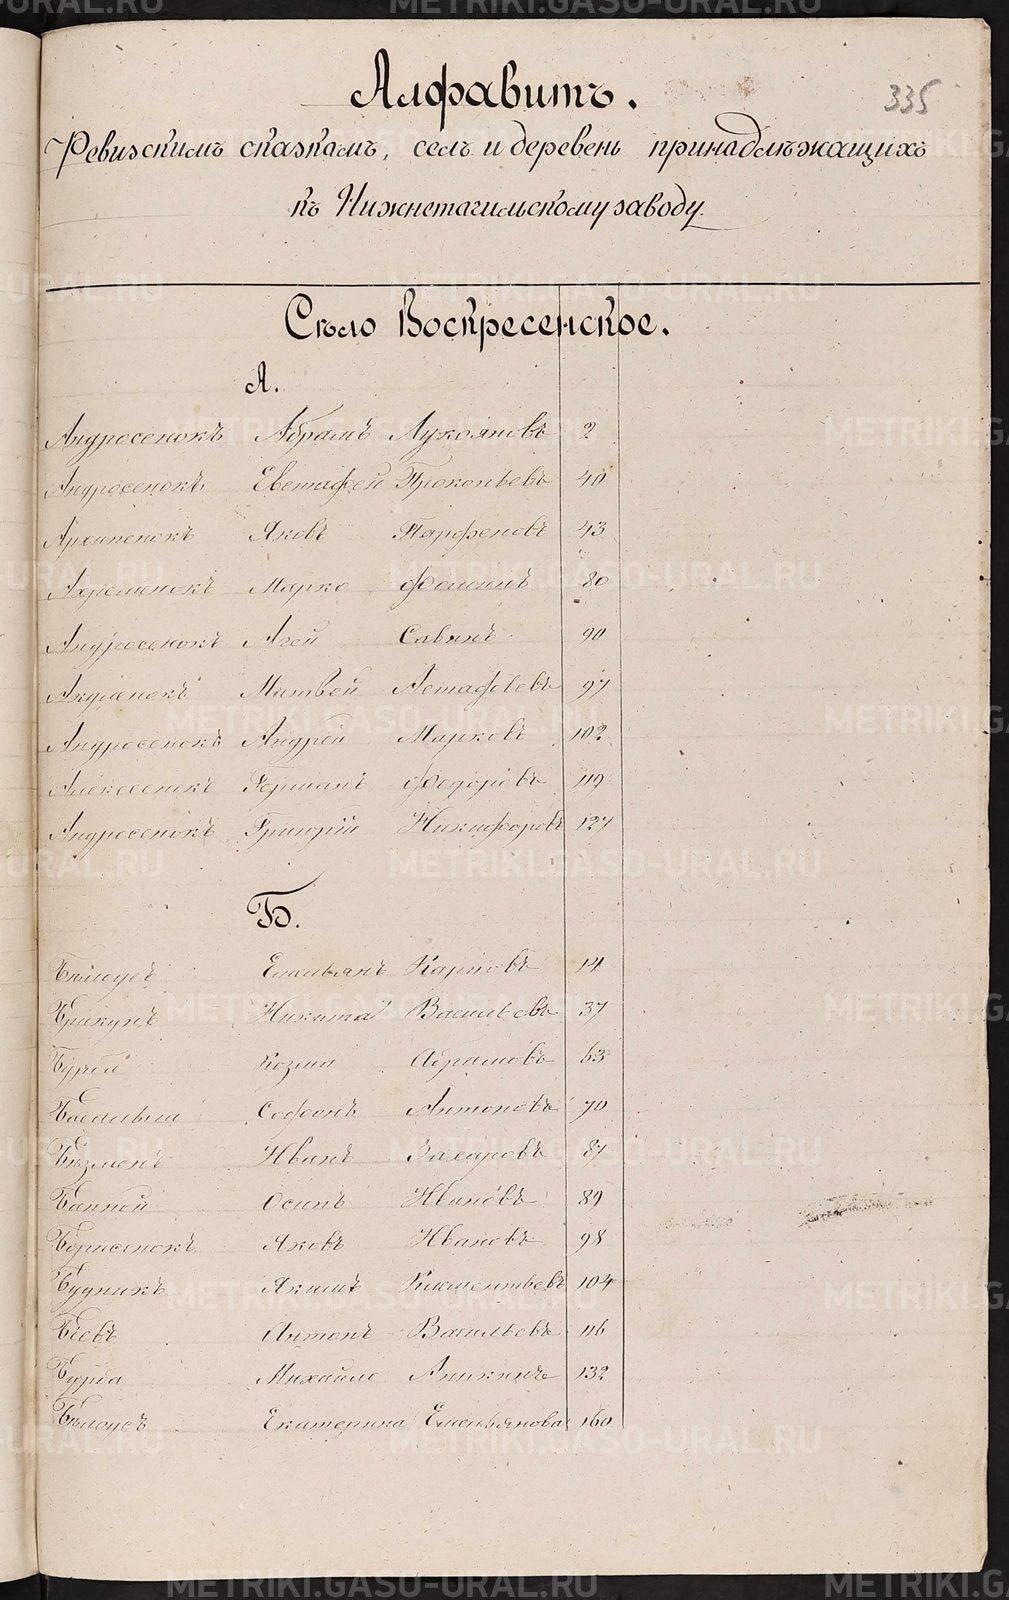 Алфавитъ.
335
Ревизскимъ сказкамъ, селъ и деревень принадлѣжащихъ
къ Нижнетагильскому заводу.
Сѣло Воскресенское.
А.
Андросенокъ Абрамъ Лукояновъ 2
Андросенокъ Евстафей Прокопьевъ 40
Архипенокъ Яковъ Парфеновъ 43
Ахременокъ Марко Фоминъ 80
Андросенокъ Агей Савинъ 90
Матвей Астафьевъ 97
Андросенокъ Андрей Марковъ 102
Алексенокъ Германъ Федоровъ 119
Андросенокъ Григорій Никифоровъ 127
Б.
Бѣлоусъ Емельянъ Карповъ 14
Брикунъ Никита Васильевъ 37
Козма Абрамовъ 63
Софонъ Антоновъ 70
Бѣзменъ Иванъ Захаровъ 87
Банной Осипъ Ивановъ 89
Борисенокъ Яковъ Ивановъ 98
Будникъ Якимъ Климентьевъ 104
Антонъ Васильевъ 116
Бурба Михайло Аникинъ 132
Бѣлоусъ Екатерина Емельянова 160
METRIKI.GASO-URAL.RU